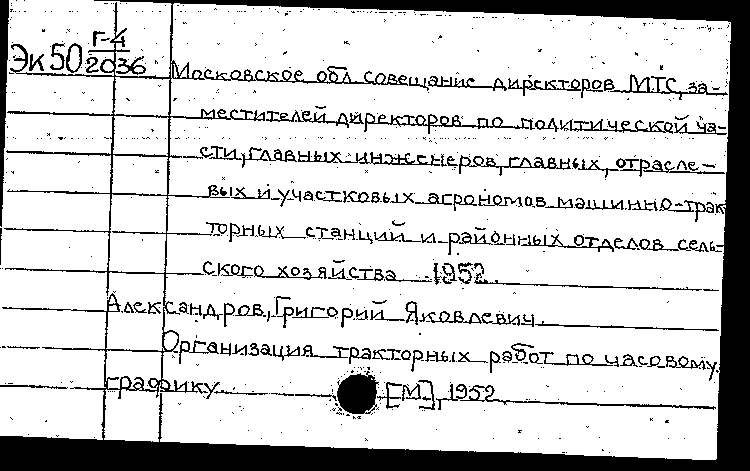 Эк 50 Г-4/2036
Московское обл совещание директоров МТС, за-
местителей директоров по политической ча-
сти, главных инженеров, главных, отрасле-
вых и участковых агрономов машинно-трак
торных станций и районных отделов сель-
ского хозяйства 1952.
Александров, Григорий Яковлевич.
Организация тракторных работ по часовому
графику. [М.], 1952.